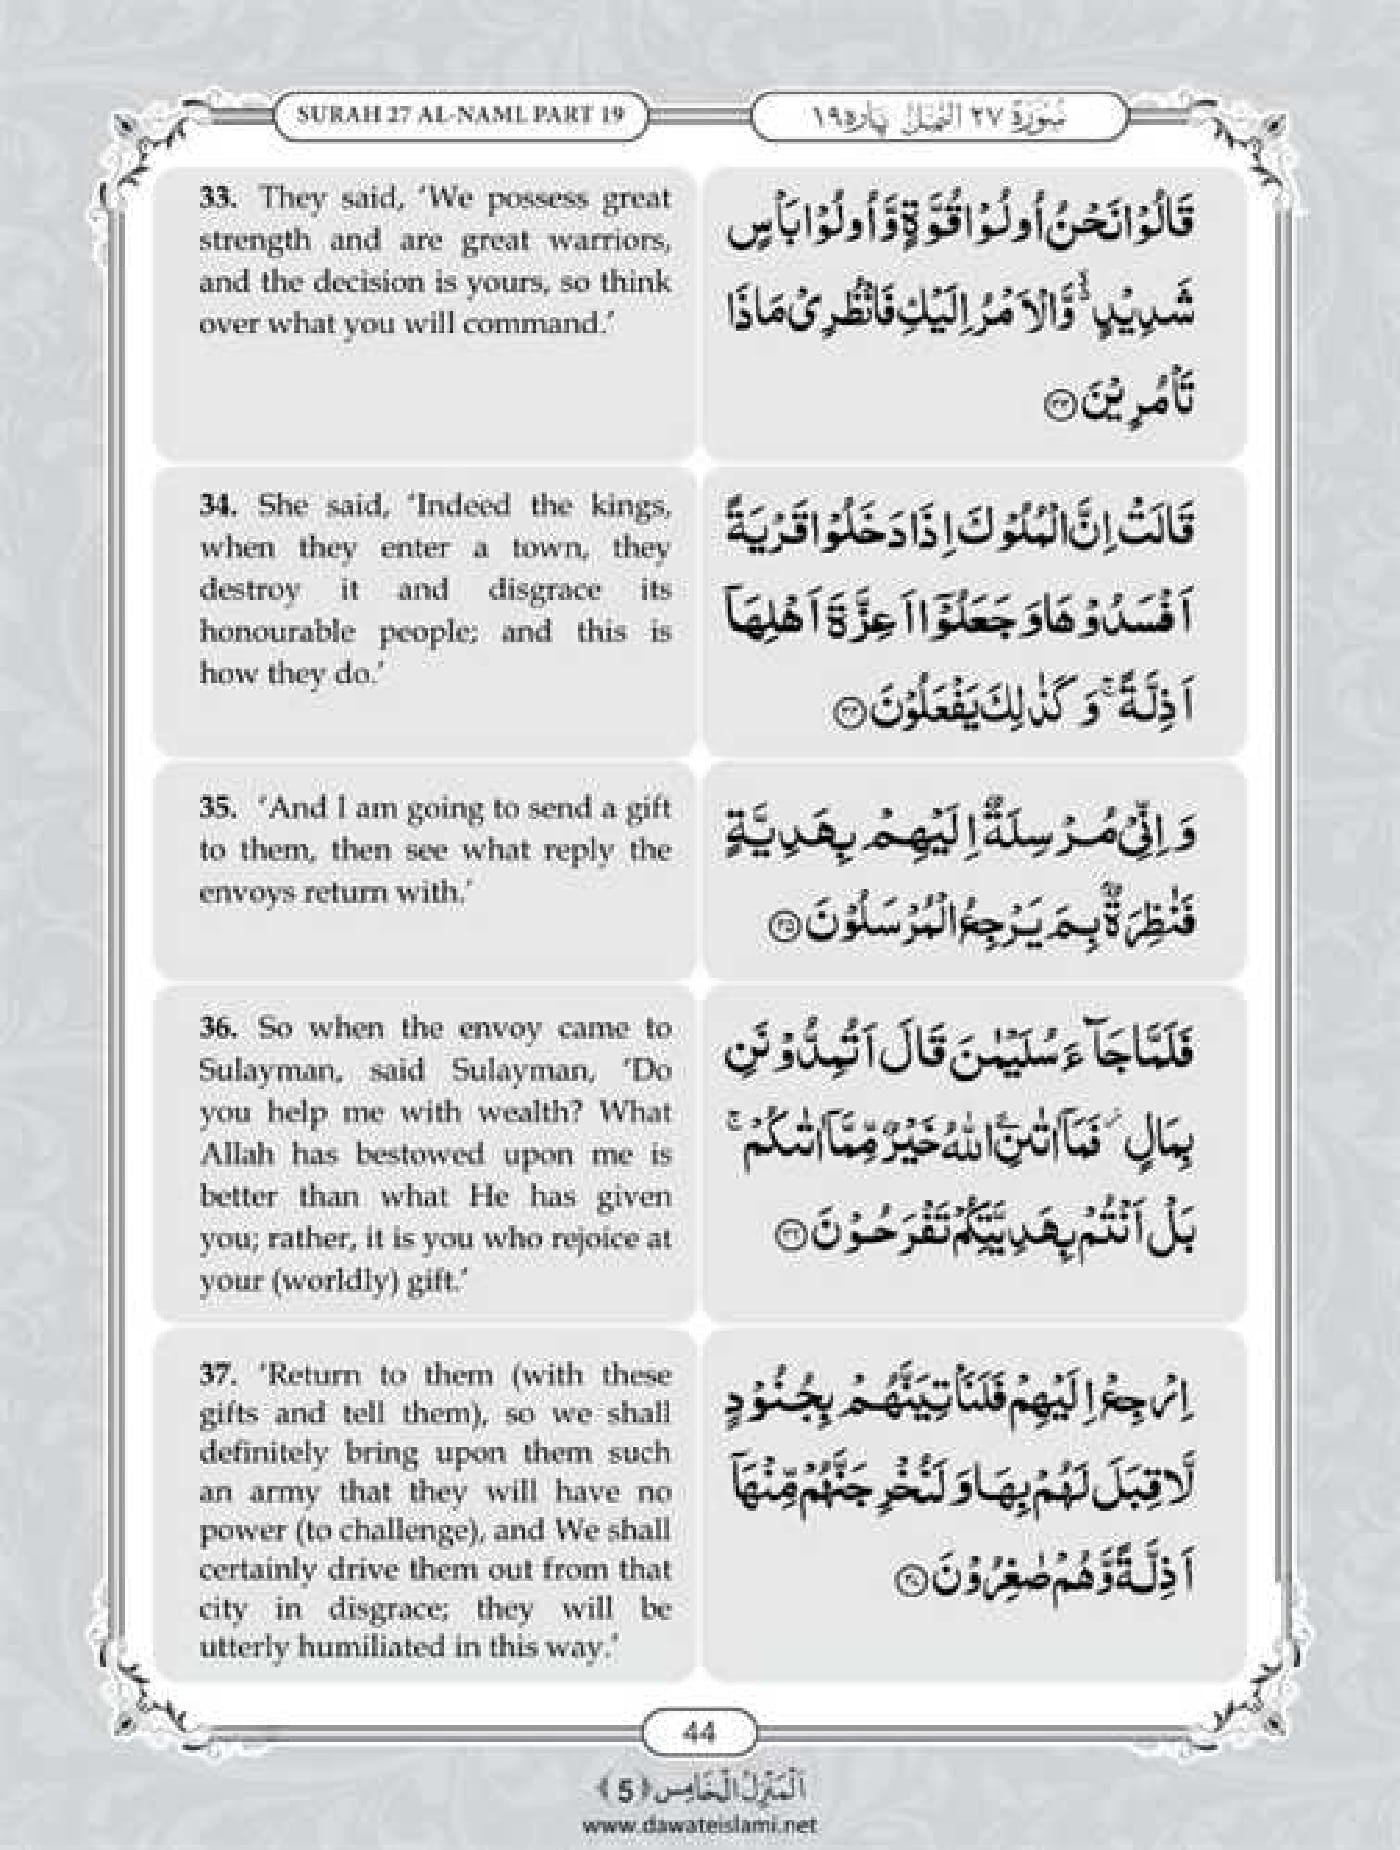 SURAH 27 AL-NAML PART 19
سُوْرَةُ ٢٧ النَّمْل پاره ١٩
33. They said, ‘We possess great
strength and are great warriors,
and the decision is yours, so think
over what you will command.’
قَالُوْا نَحْنُ اُولُوْا قُوَّةٍ وَّ اُولُوْا بَاْسٍ
شَدِیْدٍ ۙ۬ وَّ الْاَمْرُ اِلَیْكِ فَانْظُرِیْ مَاذَا
تَاْمُرِیْنَ ﴿۳۳﴾
34. She said, ‘Indeed the kings,
when they enter a town, they
destroy it and disgrace its
honourable people; and this is
how they do.’
قَالَتْ اِنَّ الْمُلُوْكَ اِذَا دَخَلُوْا قَرْیَةً
اَفْسَدُوْهَا وَ جَعَلُوْۤا اَعِزَّةَ اَهْلِهَاۤ
اَذِلَّةً ۚ وَ كَذٰلِكَ یَفْعَلُوْنَ ﴿۳۴﴾
35. ‘And I am going to send a gift
to them, then see what reply the
envoys return with.’
وَ اِنِّیْ مُرْسِلَةٌ اِلَیْهِمْ بِهَدِیَّةٍ
فَنٰظِرَةٌۢ بِمَ یَرْجِعُ الْمُرْسَلُوْنَ ﴿۳۵﴾
36. So when the envoy came to
Sulayman, said Sulayman, ‘Do
you help me with wealth? What
Allah has bestowed upon me is
better than what He has given
you; rather, it is you who rejoice at
your (worldly) gift.’
فَلَمَّا جَآءَ سُلَیْمٰنَ قَالَ اَتُمِدُّوْنَنِ
بِمَالٍ ؗ فَمَاۤ اٰتٰىنِۦَ اللّٰهُ خَیْرٌ مِّمَّاۤ اٰتٰىكُمْ ۚ
بَلْ اَنْتُمْ بِهَدِیَّتِكُمْ تَفْرَحُوْنَ ﴿۳۶﴾
37. ‘Return to them (with these
gifts and tell them), so we shall
definitely bring upon them such
an army that they will have no
power (to challenge), and We shall
certainly drive them out from that
city in disgrace; they will be
utterly humiliated in this way.’
اِرْجِعْ اِلَیْهِمْ فَلَنَاْتِیَنَّهُمْ بِجُنُوْدٍ
لَّا قِبَلَ لَهُمْ بِهَا وَ لَنُخْرِجَنَّهُمْ مِّنْهَاۤ
اَذِلَّةً وَّ هُمْ صٰغِرُوْنَ ﴿۳۷﴾
44
اَلْمَنْزِلُ الْخَامِس ﴿5﴾
www.dawateislami.net